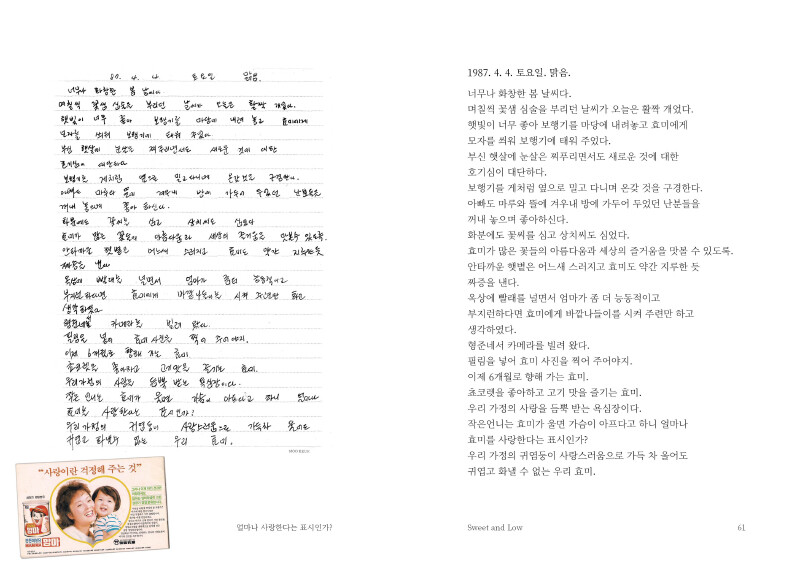 87. 4. 4. 토요일 맑음.
너무나 화창한 봄 날씨다
며칠씩 꽃샘 심술을 부리던 날씨가 오늘은 활짝 개었다.
햇빛이 너무 좋아 보행기를 마당에 내려 놓고 효미에게
모자를 씌워 보행기에 태워 주었다.
부신 햇살에 눈살은 찌푸리면서도 새로운 것에 대한
호기심이 대단하다
보행기를 게처럼 옆으로 밀고 다니며 온갖 것을 구경한다.
아빠도 마루와 뜰에 겨우내 방에 가두어 두었던 난분들을
꺼내 놓으며 좋아 하신다.
화분에도 꽃씨를 심고 상치씨도 심었다
효미가 많은 꽃들의 아름다움과 세상의 즐거움을 맛볼수 있도록.
안타까운 햇볕은 어느새 스러지고 효미도 약간 지루한듯
짜증을 낸다
옥상에 빨래를 널면서 엄마가 좀더 능동적이고
부지런하다면 효미에게 바깥나들이를 시켜 주련만 하고
생각하였다
형준네서 카메라를 빌려 왔다.
필림을 넣어 효미 사진을 찍어 주어야지.
이제 6개월로 향해 가는 효미
쵸코렛을 좋아하고 고기맛을 즐기는 효미.
우리가정의 사랑을 듬뿍 받는 욕심장이다.
작은 언니는 효미가 울면 가슴이 아프다고 하니 얼마나
효미를 사랑한다는 표시인가?
우리 가정의 귀염둥이 사랑스러움으로 가득차 울어도
귀엽고 화낼수 없는 우리 효미.
"사랑이란 걱정해 주는 것"
맘마
얼마나 사랑한다는 표시인가?
1987. 4. 4. 토요일. 맑음.
너무나 화창한 봄 날씨다.
며칠씩 꽃샘 심술을 부리던 날씨가 오늘은 활짝 개었다.
햇빛이 너무 좋아 보행기를 마당에 내려놓고 효미에게
모자를 씌워 보행기에 태워 주었다.
부신 햇살에 눈살은 찌푸리면서도 새로운 것에 대한
호기심이 대단하다.
보행기를 게처럼 옆으로 밀고 다니며 온갖 것을 구경한다.
아빠도 마루와 뜰에 겨우내 방에 가두어 두었던 난분들을
꺼내 놓으며 좋아하신다.
화분에도 꽃씨를 심고 상치씨도 심었다.
효미가 많은 꽃들의 아름다움과 세상의 즐거움을 맛볼 수 있도록.
안타까운 햇볕은 어느새 스러지고 효미도 약간 지루한 듯
짜증을 낸다.
옥상에 빨래를 널면서 엄마가 좀 더 능동적이고
부지런하다면 효미에게 바깥나들이를 시켜 주련만 하고
생각하였다.
형준네서 카메라를 빌려 왔다.
필림을 넣어 효미 사진을 찍어 주어야지.
이제 6개월로 향해 가는 효미.
쵸코렛을 좋아하고 고기 맛을 즐기는 효미.
우리 가정의 사랑을 듬뿍 받는 욕심장이다.
작은언니는 효미가 울면 가슴이 아프다고 하니 얼마나
효미를 사랑한다는 표시인가?
우리 가정의 귀염둥이 사랑스러움으로 가득 차 울어도
귀엽고 화낼 수 없는 우리 효미.
Sweet and Low
61